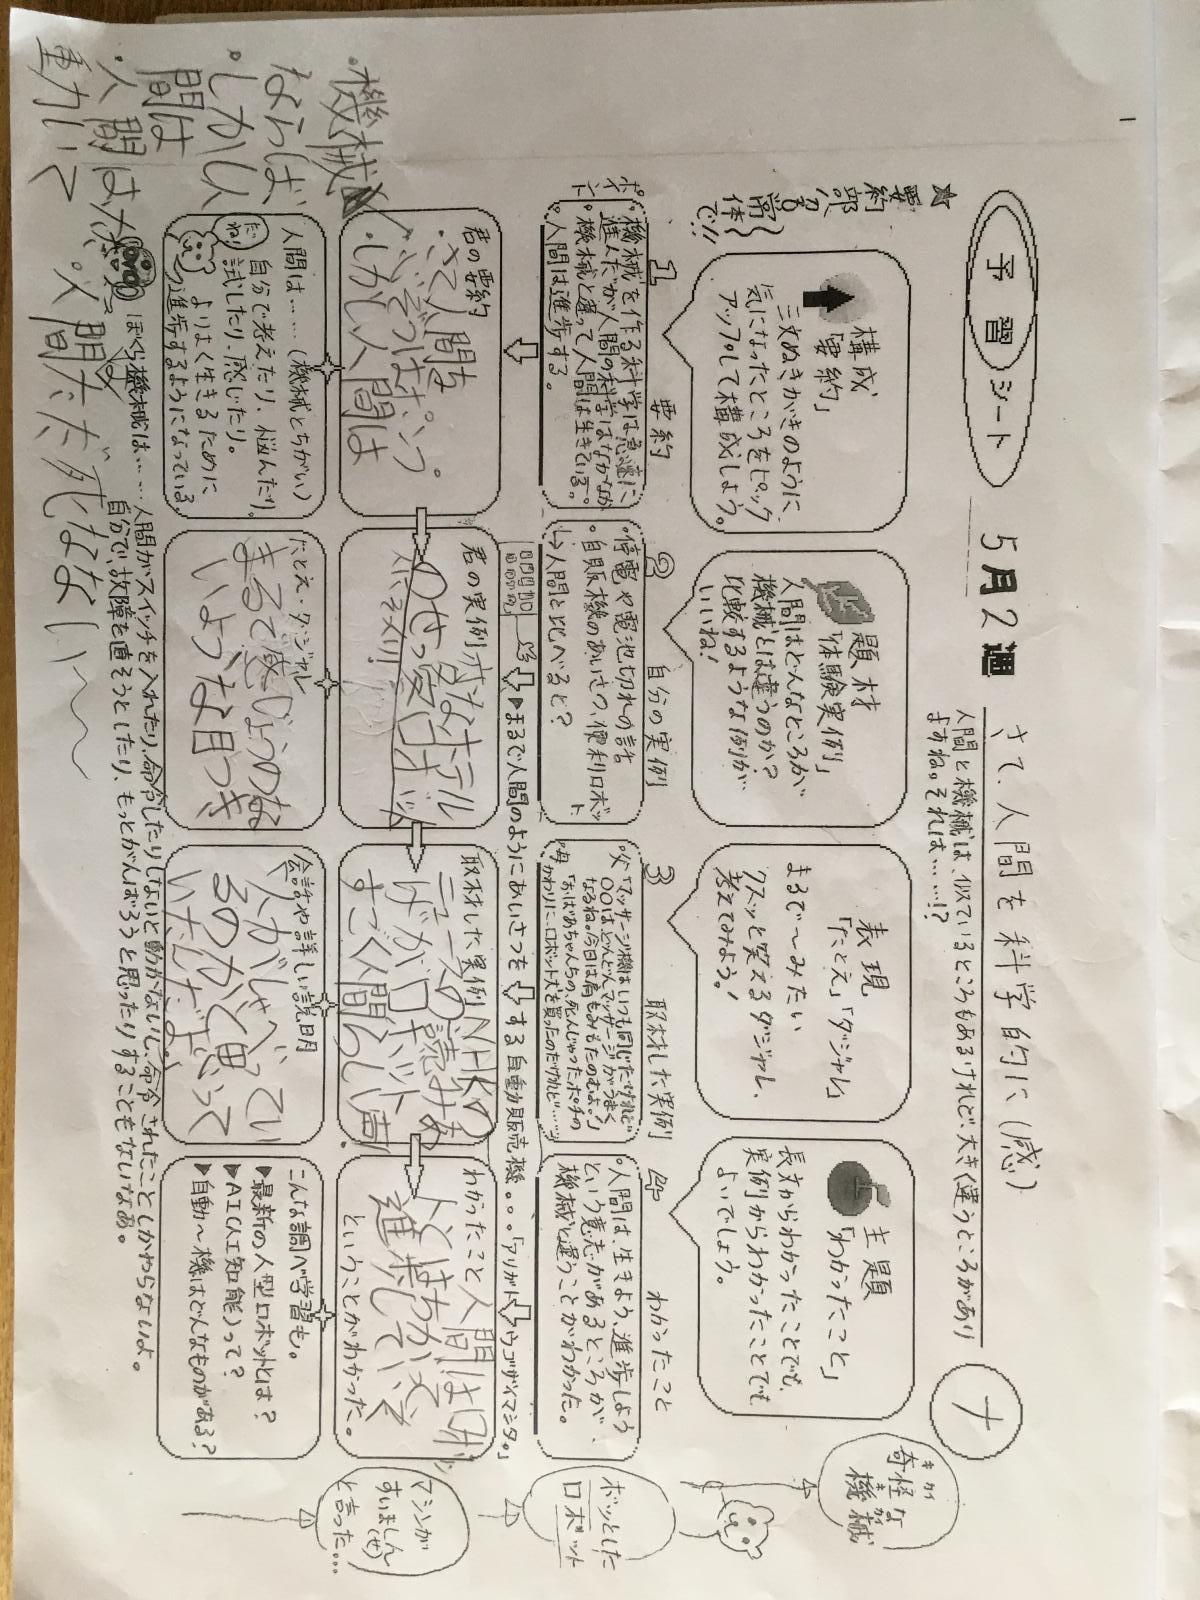 予習シート
5月2週
さて、人間を科学的に(感)
人間と機械は、似ているところもあるけれど、大きく違うところがあり
ますね。それは……!?
ナ
★要約
部分は
常体
で!!
構成
「要約」
三文ぬきがきのように、
気になったところをピック
アップして構成しよう。
題材
「体験実例」
人間はどんなところが
機械とは違うのか?
比較するような例が
いいね!
表現
「たとえ」「ダジャレ」
まるで〜みたい
クスッと笑えるダジャレ、
考えてみよう!
主題
「わかったこと」
長文からわかったことでも、
実例からわかったことでも
よいでしょう。
奇怪な
キカイ
機械
キカイ
1
要約
ポイント
・機械を作る科学は急速に
進んだが、人間の科学はなかなか
・機械と違って人間は生きている。
・人間は進歩する。
2
自分の実例
・停電や電池切れの話。
・自販機のあいさつ、便利ロボット
↳人間と比べると?
3
取材した実例
父「マッサージ機はいつも同じだけれど
〇〇はどんどんマッサージがうまく
なるね。今日は肩もみもたのむよ。」
母「おばあちゃんちの、死んじゃったポチの
かわりに、ロボット犬を買ったのだけれど……
4
わかったこと
・人間は、生きよう、進歩しよう
という意志があるところが、
機械と違うことがわかった。
ボッとした
ロボット
▶まるで人間のようにあいさつをする自動販売機。。。「アリガトウゴザイマシタ。」
君の要約
・さて人間は
・しかし人間は
君の実例
取材した実例 NHKの
ニュースの読みあ
げがロボット
すごく人間らしい声。
わかったこと 人間はロボッ
トとはちがって
進歩している
ということがわかった。
マシンが
すいましぇん
(せ)
と言った…
人間は……(機械とちがい)
自分で考えたり、悩んだり、
試したり、感じたり。
よりよく生きるために
進歩するようになっている。
だね!
たとえ・ダジャレ
まるで感じょうのな
いような目つき
会話や詳しい説明
「人がしゃべってい
るのかと思って
いたんだよ。」
こんな調べ学習も。
▶最新の人型ロボットとは?
▶AI(人工知能)って?
▶自動〜機はどんなものがある?
ぼくら機械は……人間がスイッチを入れたり、命令したりしないと動かないし、命令されたことしかやらないよ。
自分で、故障を直そうとしたり、もっとがんばろうと思ったりすることもないなあ。
・機械
ならば
・しかし人
間は